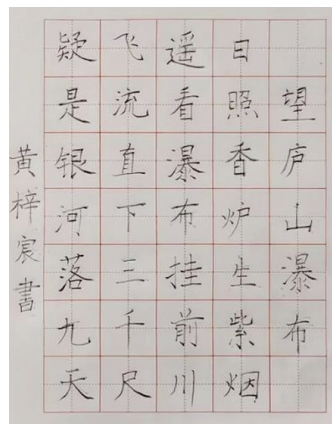 望庐山瀑布
日照香炉生紫烟
遥看瀑布挂前川
飞流直下三千尺
疑是银河落九天
黄梓宸書